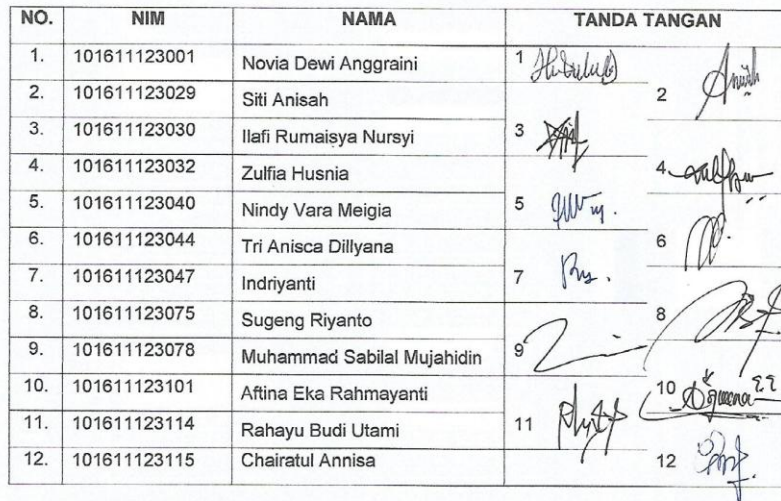 NO. NIM NAMA TANDA TANGAN
1. 101611123001 Novia Dewi Anggraini 1
2. 101611123029 Siti Anisah 2
3. 101611123030 Ilafi Rumaisya Nursyi 3
4. 101611123032 Zulfia Husnia 4
5. 101611123040 Nindy Vara Meigia 5
6. 101611123044 Tri Anisca Dillyana 6
7. 101611123047 Indriyanti 7
8. 101611123075 Sugeng Riyanto 8
9. 101611123078 Muhammad Sabilal Mujahidin 9
10. 101611123101 Aftina Eka Rahmayanti 10
11. 101611123114 Rahayu Budi Utami 11
12. 101611123115 Chairatul Annisa 12